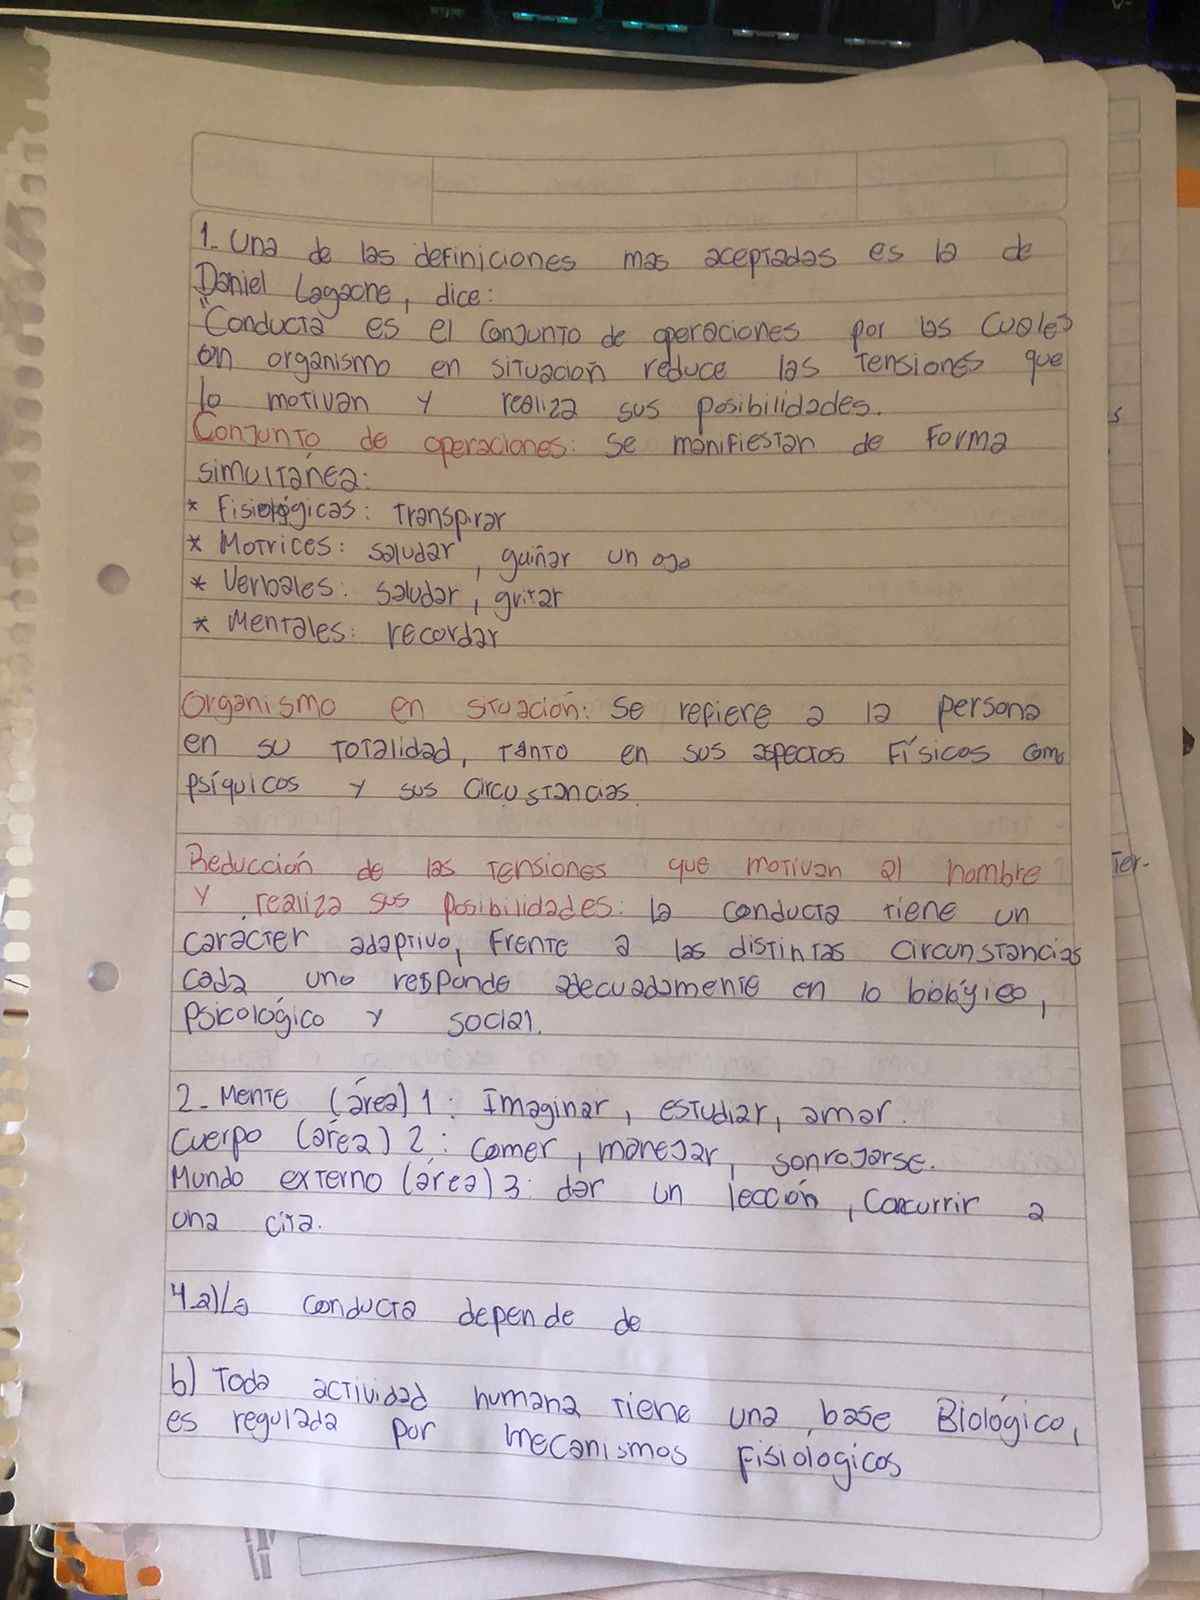 1. Una de las definiciones mas aceptadas es la de
Daniel Lagache, dice:
"Conducta es el conjunto de operaciones por las cuales
un organismo en situación reduce las tensiones que
lo motivan y realiza sus posibilidades.
Conjunto de operaciones: Se manifiestan de forma
simultánea:
* Fisiológicas: transpirar
* Motrices: saludar, guiñar un ojo
* Verbales: saludar, gritar
* Mentales: recordar
Organismo en situación: Se refiere a la persona
en su totalidad, tanto en sus aspectos físicos como
psíquicos y sus circustancias.
Reducción de las tensiones que motivan al hombre
y realiza sus posibilidades: la conducta tiene un
carácter adaptivo, frente a las distintas circunstancias
cada uno responde adecuadamente en lo biológico,
psicológico y social.
2. Mente (área) 1: Imaginar, estudiar, amar.
Cuerpo (área) 2: Comer, manejar, sonrojarse.
Mundo externo (área) 3: dar un lección, concurrir a
una cita.
4.a) La conducta depende de
b) Toda actividad humana tiene una base Biológico,
es regulada por mecanismos fisiologicos
s
Ter-